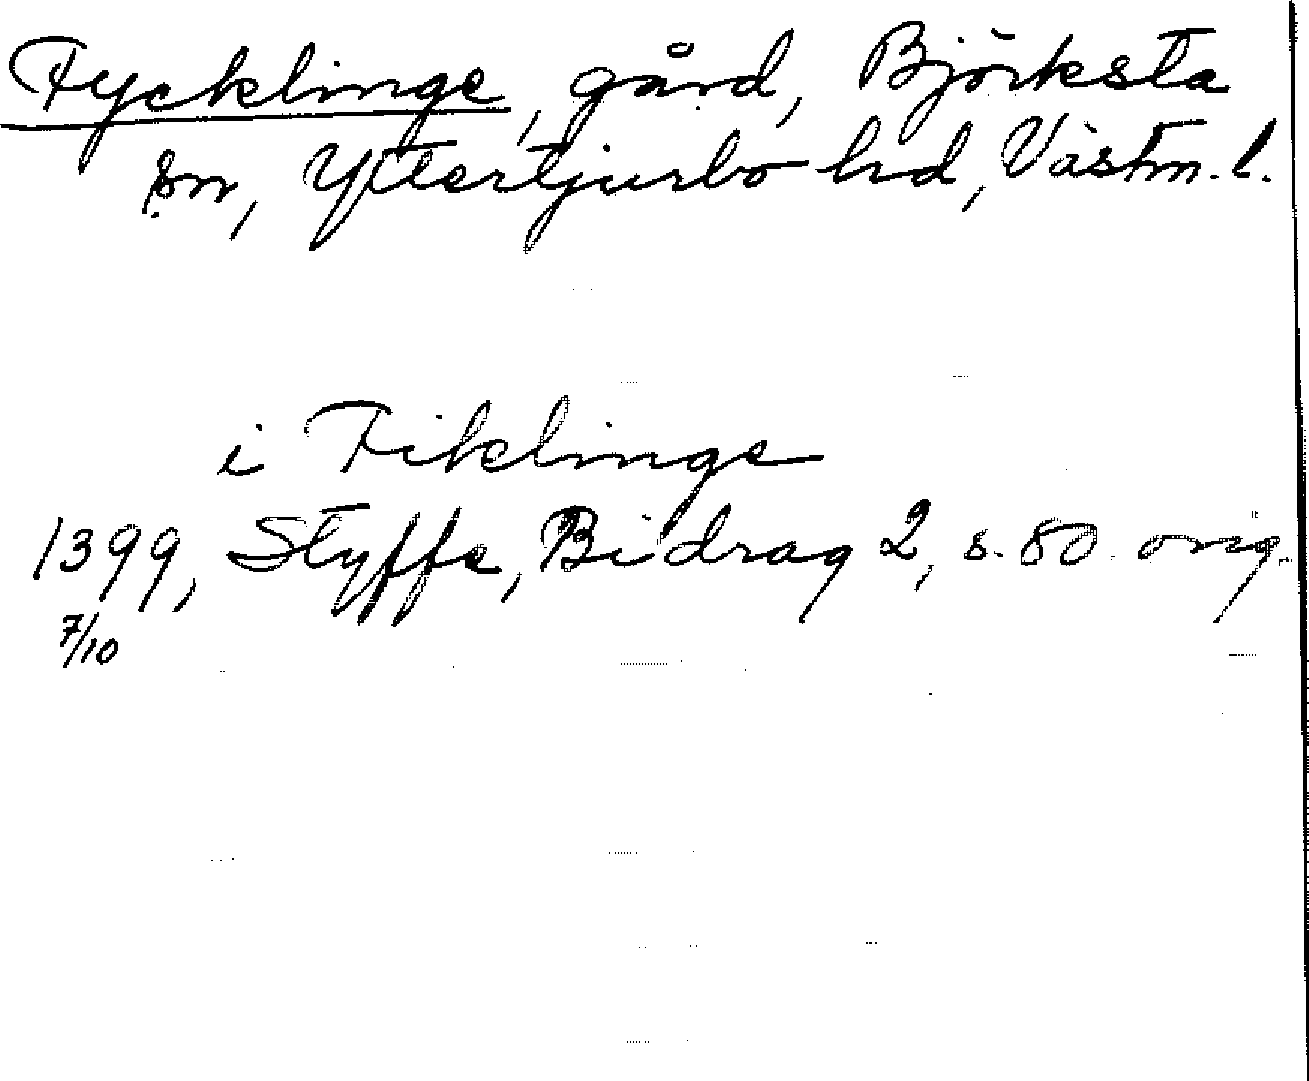 Fycklinge, gård, Björksta
sn, Yttertjurbo hd, Västm. l.
i Fiklinge
1399, Styffe, Bidrag 2, s. 80. orig.
7/10